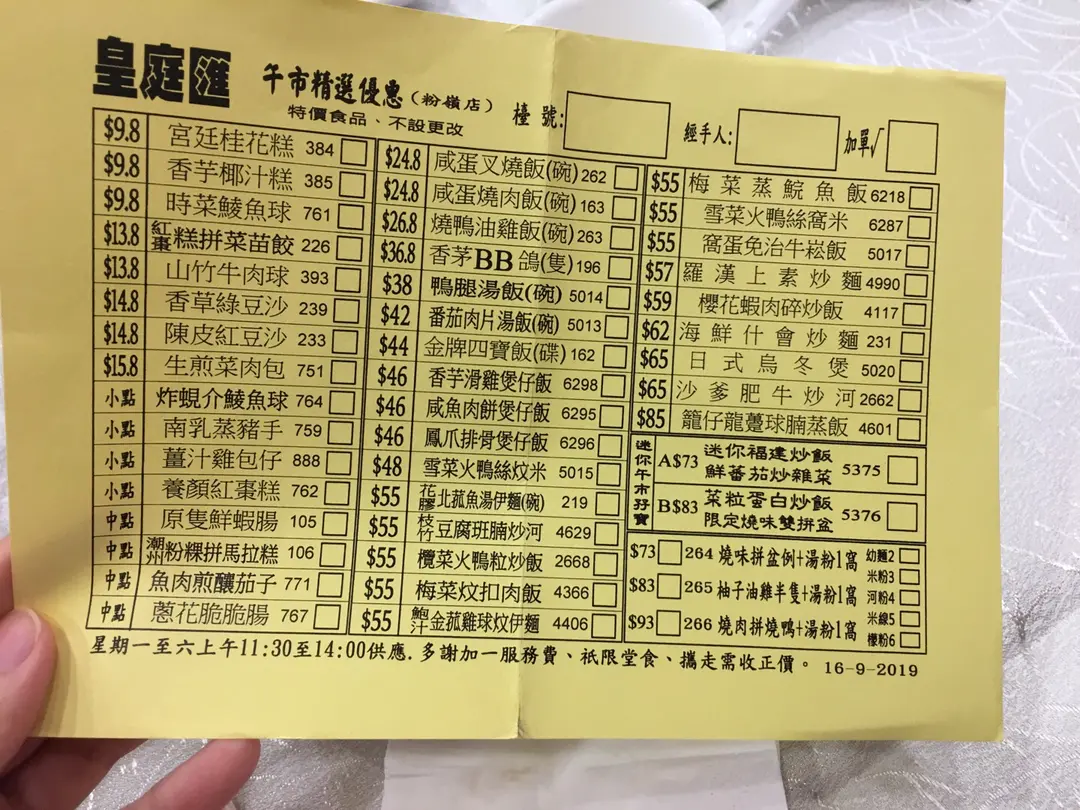 皇庭匯 午市精選優惠（粉嶺店）
特價食品、不設更改
檯號:
經手人:
加單√
$9.8 宮廷桂花糕 384
$9.8 香芋椰汁糕 385
$9.8 時菜鯪魚球 761
$13.8 紅棗糕拼菜苗餃 226
$13.8 山竹牛肉球 393
$14.8 香草綠豆沙 239
$14.8 陳皮紅豆沙 233
$15.8 生煎菜肉包 751
小點 炸蜆介鯪魚球 764
小點 南乳蒸豬手 759
小點 薑汁雞包仔 888
小點 養顏紅棗糕 762
中點 原隻鮮蝦腸 105
中點 潮州粉粿拼馬拉糕 106
中點 魚肉煎釀茄子 771
中點 蔥花脆脆腸 767
$24.8 咸蛋叉燒飯(碗) 262
$24.8 咸蛋燒肉飯(碗) 163
$26.8 燒鴨油雞飯(碗) 263
$36.8 香茅BB鴿(隻) 196
$38 鴨腿湯飯(碗) 5014
$42 番茄肉片湯飯(碗) 5013
$44 金牌四寶飯(碟) 162
$46 香芋滑雞煲仔飯 6298
$46 咸魚肉餅煲仔飯 6295
$46 鳳爪排骨煲仔飯 6296
$48 雪菜火鴨絲炆米 5015
$55 花膠北菰魚湯伊麵(碗) 219
$55 枝竹豆腐班腩炒河 4629
$55 欖菜火鴨粒炒飯 2668
$55 梅菜炆扣肉飯 4366
$55 鮑汁金菰雞球炆伊麵 4406
$55 梅菜蒸鯇魚飯 6218
$55 雪菜火鴨絲窩米 6287
$55 窩蛋免治牛崧飯 5017
$57 羅漢上素炒麵 4990
$59 櫻花蝦肉碎炒飯 4117
$62 海鮮什會炒麵 231
$65 日式烏冬煲 5020
$65 沙爹肥牛炒河 2662
$85 籠仔龍躉球腩蒸飯 4601
迷你午市孖寶
A$73 迷你福建炒飯
鮮蕃茄炒雜菜 5375
B$83 菜粒蛋白炒飯
限定燒味雙拼盆 5376
$73 264 燒味拼盆例+湯粉1窩
$83 265 柚子油雞半隻+湯粉1窩
$93 266 燒肉拼燒鴨+湯粉1窩
幼麵2
米粉3
河粉4
米線5
檬粉6
星期一至六上午11:30至14:00供應．多謝加一服務費、祇限堂食、攜走需收正價。 16-9-2019